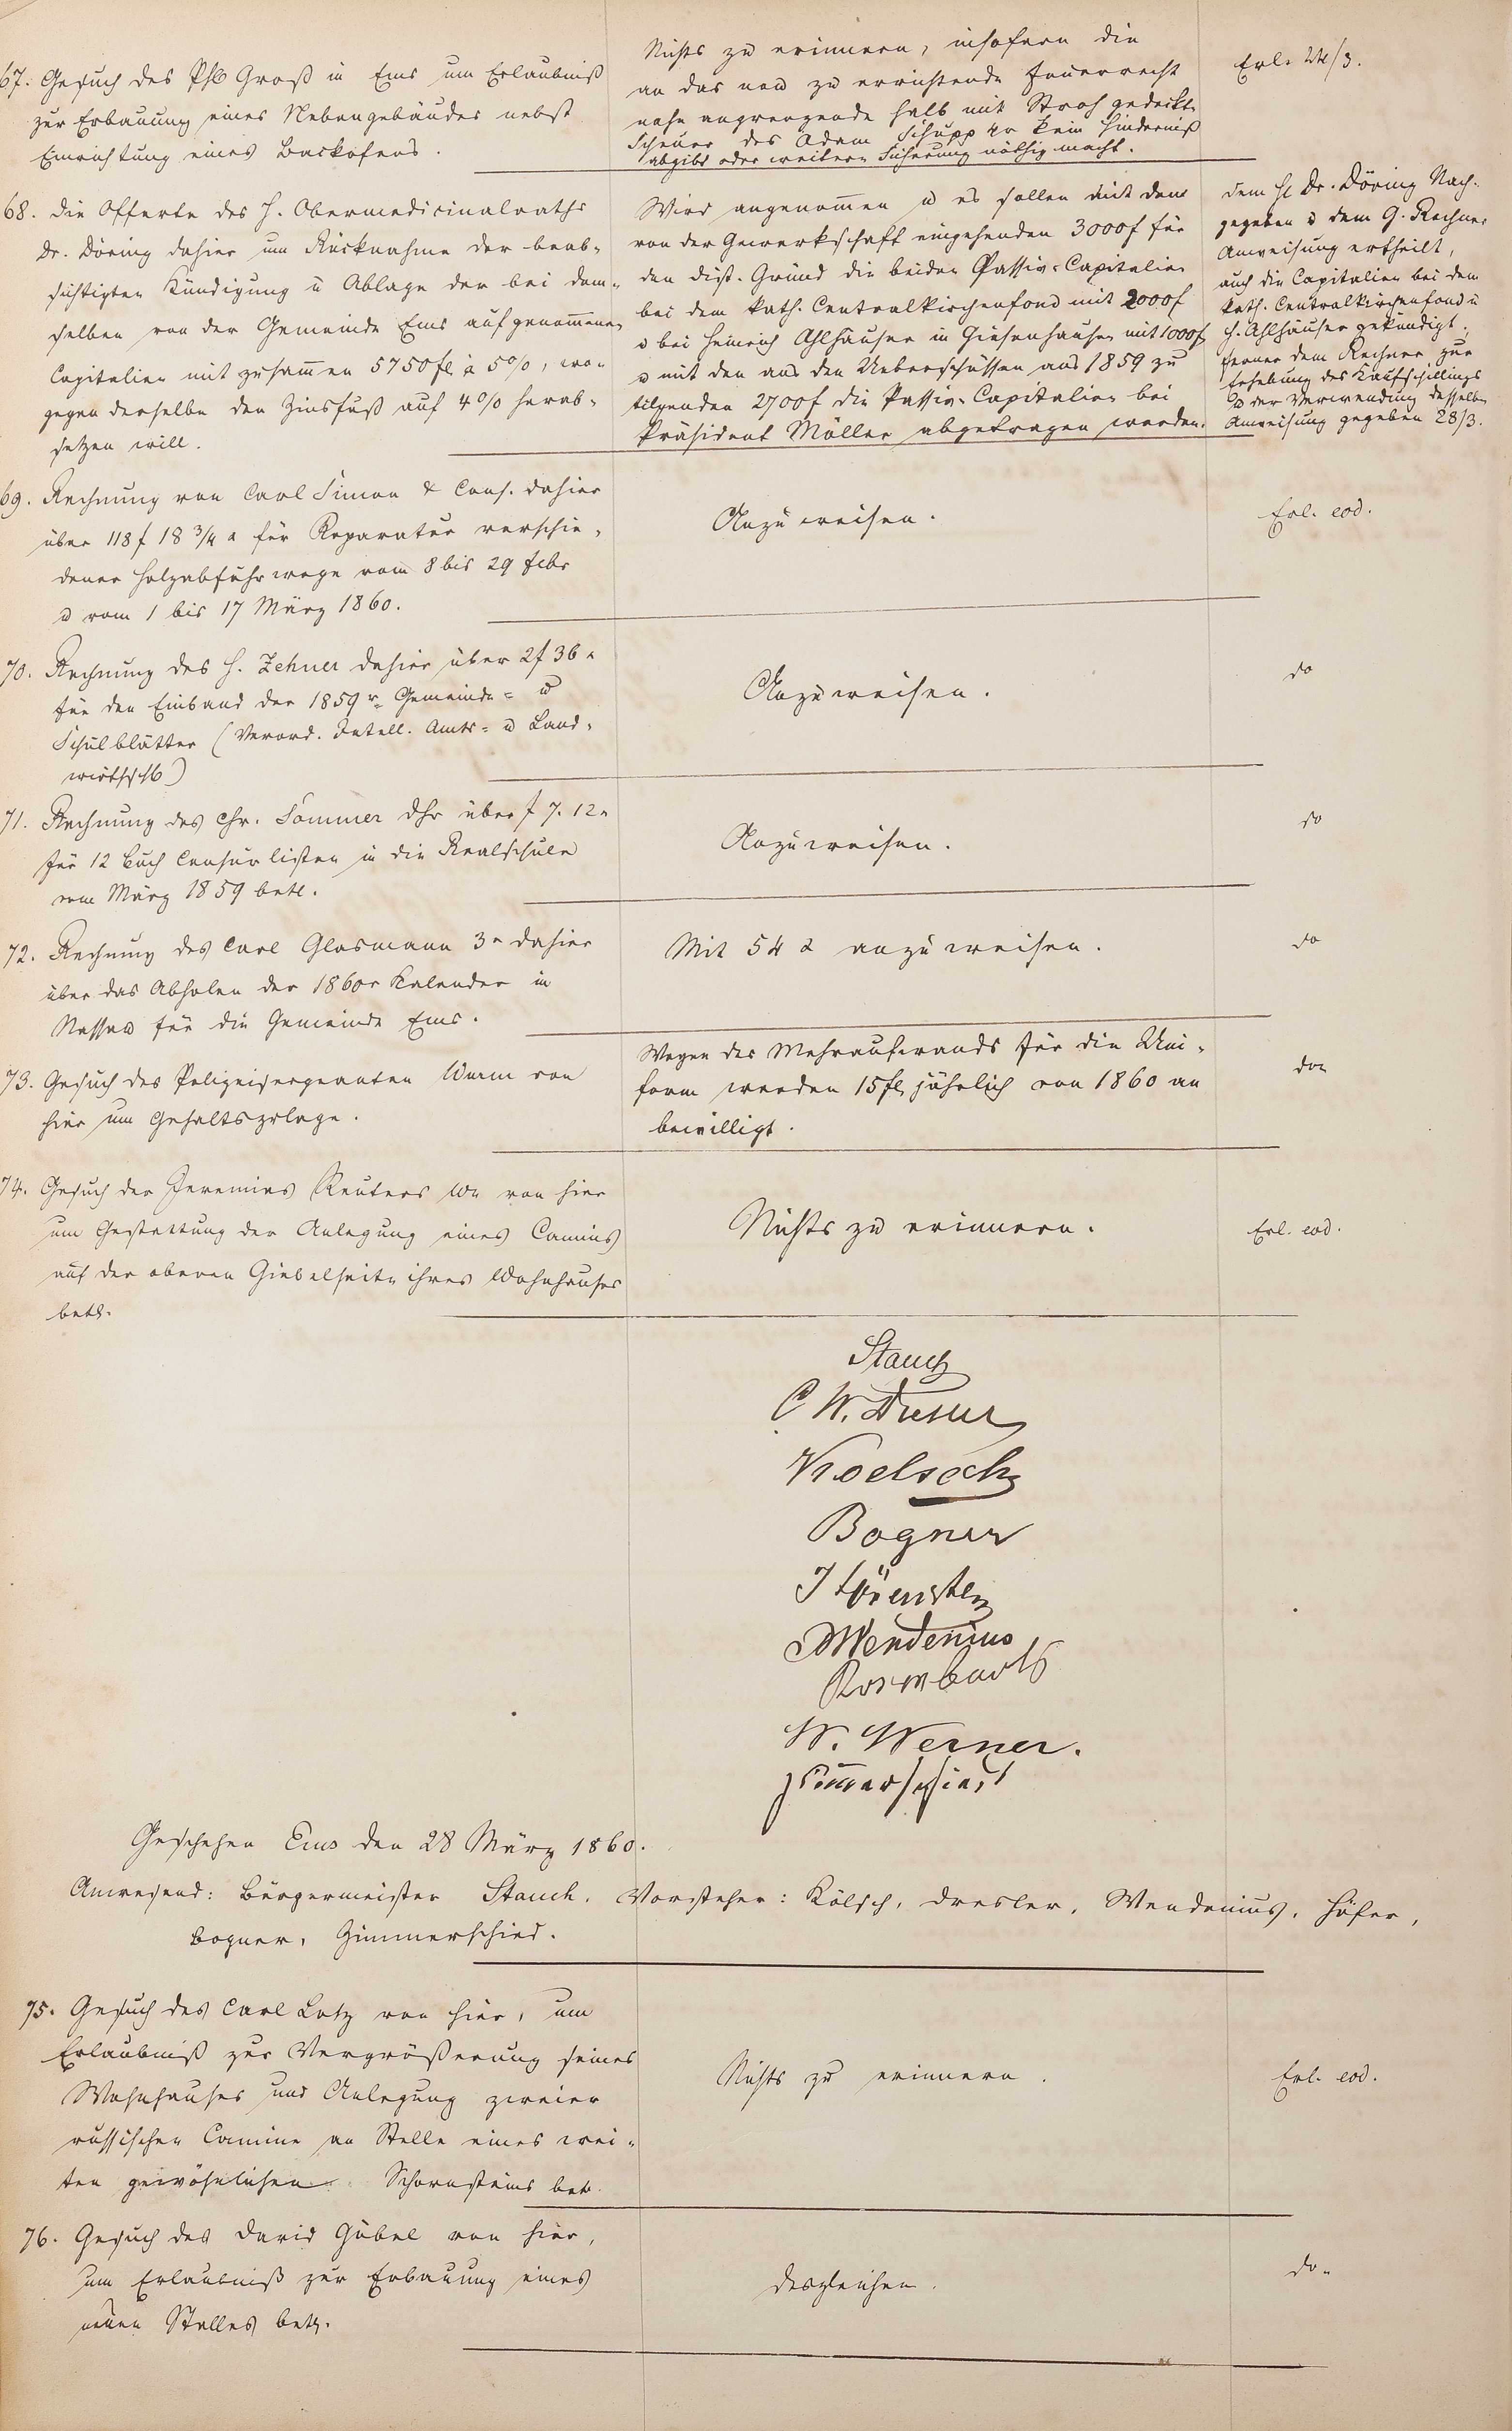 67. Gesuch des Phb Groß in Ems um Erlaubniß
zur Erbauung eines Nebengebäudes nebst
Einrichtung eines Backofens.
Nichts zu erinnern, insofern die
an das neu zu errichtende Feuerrecht
nahe angrenzende halb mit Stroh gedeckte
Scheuer des Adam Schupp 4r kein Hinderniß
abgibt oder weitere Sicherung nöthig macht.
Erl. 24/3.
68. Die Offerte des H. Obermedicinalraths
Dr. Döring dahier um Rücknahme der beab-
sichtigten Kündigung u Ablage der bei dem-
selben von der Gemeinde Ems aufgenommenen
Capitalien mit zusammen 5750 fl à 5%, wo-
gegen derselbe den Zinsfuß auf 4% herab-
setzen will.
Wird angenommen u es sollen mit dem
von der Gewerkschaft eingehenden 3000f für
den Distr. Grund die beiden Passiv-Capitalien
bei dem kath. Centralkirchenfond mit 2000f
u bei Heinrich Ahlhäuser in Giesenhausen mit 1000f
u mit den aus den Ueberschüssen aus 1859 zu
tilgenden 2700f die Passiv-Capitalien bei
Präsident Möller abgetragen werden.
Dem H Dr. Döring Nach.
gegeben u dem G. Rechner
Anweisung ertheilt,
auch die Capitalien bei dem
kath. Centralkirchenfond u
H. Ahlhäuser gekündigt;
ferner dem Rechner zur
Erhebung des Kaufschillings
u der Verwendung desselben
Anweisung gegeben 28/3.
69. Rechnung von Carl Simon & Cons. dahier
über 118 f 18 3/4 x für Reparatur verschie-
dener Holzabfuhrwege vom 8 bis 29 Febr
u vom 1 bis 17 März 1860.
Anzuweisen.
Erl. eod.
70. Rechnung des H. Zehner dahier über 2f 36x
für den Einband der 1859r Gemeinde- u
Schulblätter (Verord. Intell. Amts- u Land-
wirthschb)
Anzuweisen.
do
71. Rechnung des Chr. Sommer dhr über f 7. 12x
für 12 Buch Censurlisten in die Realschule
vom März 1859 betr.
Anzuweisen.
do
72. Rechnung des Carl Glasmann 3r dahier
über das Abholen der 1860r Kalender in
Nassau für die Gemeinde Ems.
Mit 54 x anzuweisen.
do
73. Gesuch des Polizeisergeanten Wurm von
hier um Gehaltszulage.
Wegen des Mehraufwands für die Uni-
form werden 15 fl jährlich von 1860 an
bewilligt.
do
74. Gesuch der Jeremias Reuters We von hier
um Gestattung der Anlegung eines Camins
auf der oberen Giebelseite ihres Wohnhauses
betr.
Nichts zu erinnern.
Erl. eod.
Stauch
C W. Dresler
Koelsch
Bogner
Wendenius
W. Werner.
Zimmerschied
Geschehen Ems den 28 März 1860.
Anwesend: Bürgermeister Stauch, Vorsteher: Kölsch, Dresler, Wendenius, Höfer,
Bogner, Zimmerschied.
75. Gesuch des Carl Lotz von hier, um
Erlaubniß zur Vergrößerung seines
Wohnhauses und Anlegung zweier
russischer Camine an Stelle eines wei-
ten gewöhnlichen Schornsteins betr.
Nichts zu erinnern.
Erl. eod.
76. Gesuch des David Göbel von hier,
um Erlaubniß zur Erbauung eines
neuen Stalles betr.
desgleichen.
do